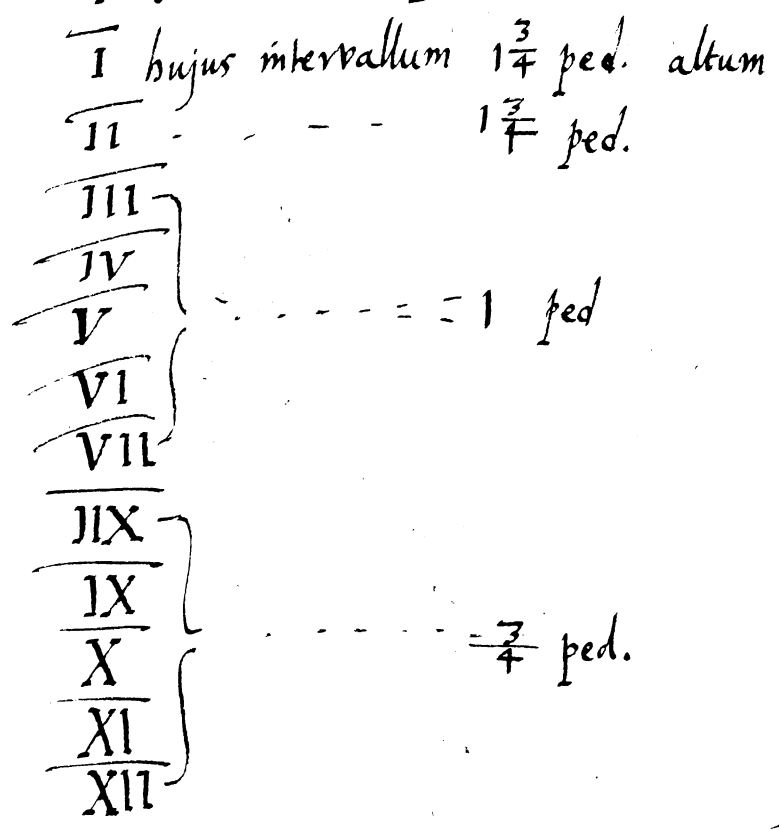 I hujus intervallum 1 3/4 ped. altum
II - - - - 1 3/4 ped.
III
IV
V - - - - = = 1 ped
VI
VII
IIX
IX
X - - - - - - 3/4 ped.
XI
XII